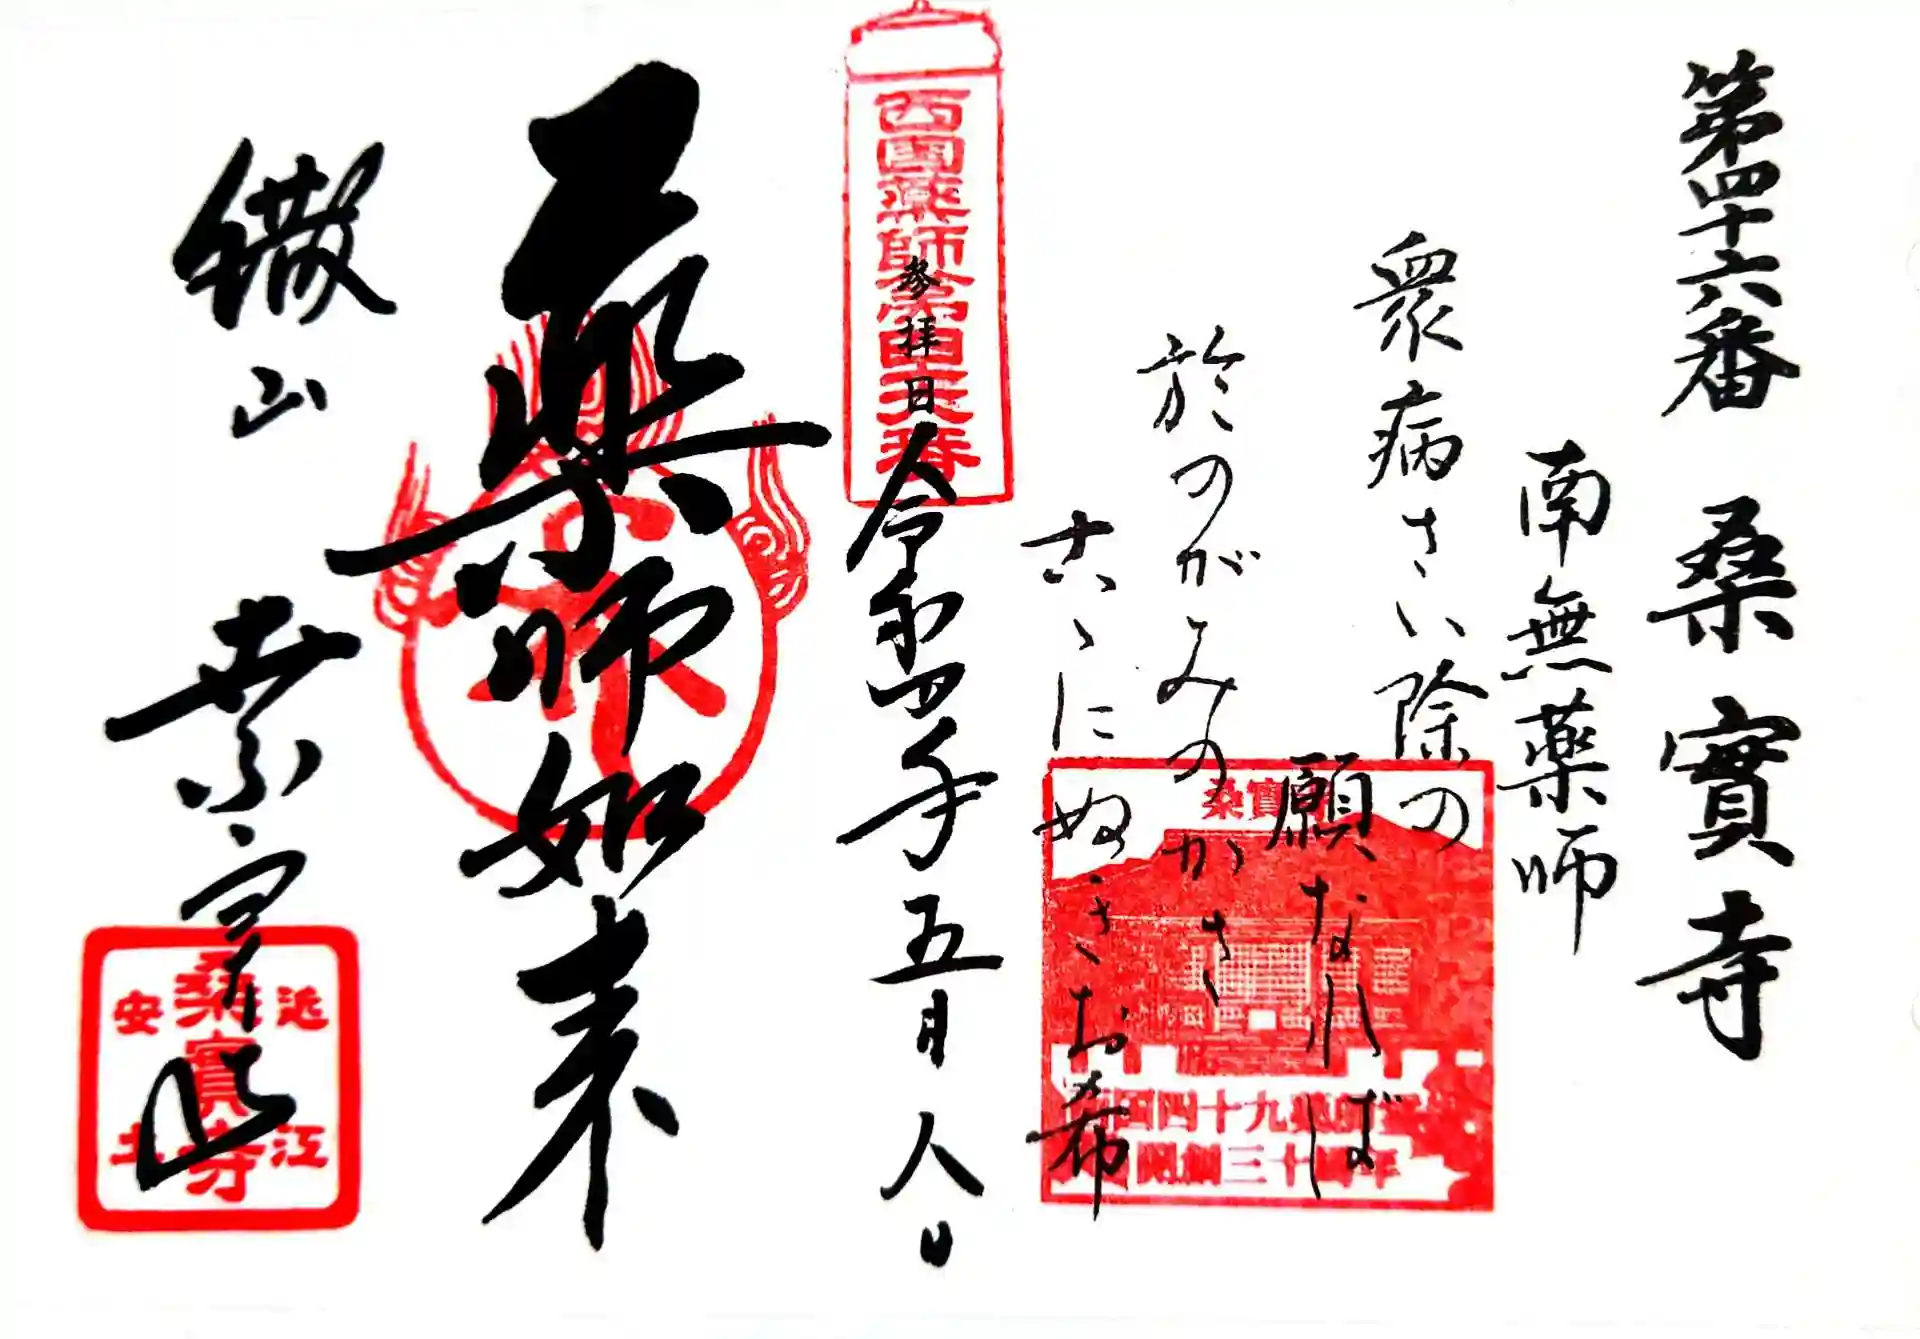 第四十六番 桑實寺
南無薬師
衆病さい除の
願なれば
於のがみのかさ
古ゝにぬきお希
桑實寺
西国四十九薬師霊場
開創三十周年
西国薬師第四十六番
参拝日 令和四年五月八日
薬師如来
繖山 桑實寺
近江
桑實寺
安土